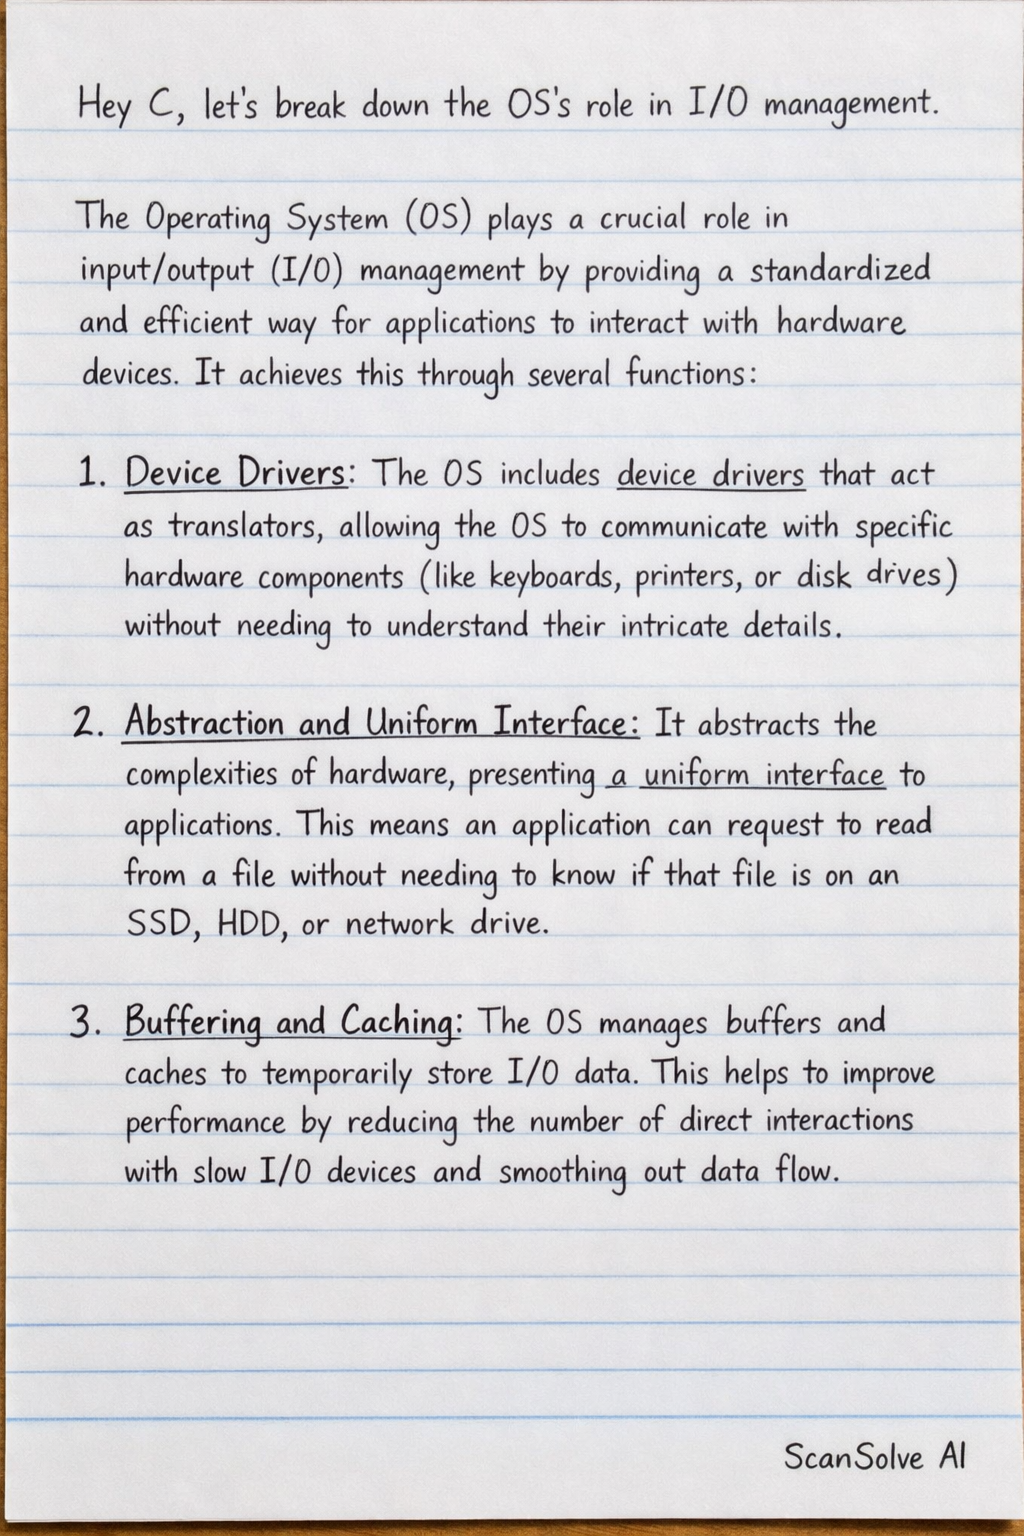 Hey C, let's break down the OS's role in I/O management.
The Operating System (OS) plays a crucial role in
input/output (I/O) management by providing a standardized
and efficient way for applications to interact with hardware
devices. It achieves this through several functions:
1. Device Drivers: The OS includes device drivers that act
as translators, allowing the OS to communicate with specific
hardware components (like keyboards, printers, or disk drives)
without needing to understand their intricate details.
2. Abstraction and Uniform Interface: It abstracts the
complexities of hardware, presenting a uniform interface to
applications. This means an application can request to read
from a file without needing to know if that file is on an
SSD, HDD, or network drive.
3. Buffering and Caching: The OS manages buffers and
caches to temporarily store I/O data. This helps to improve
performance by reducing the number of direct interactions
with slow I/O devices and smoothing out data flow.
ScanSolve AI